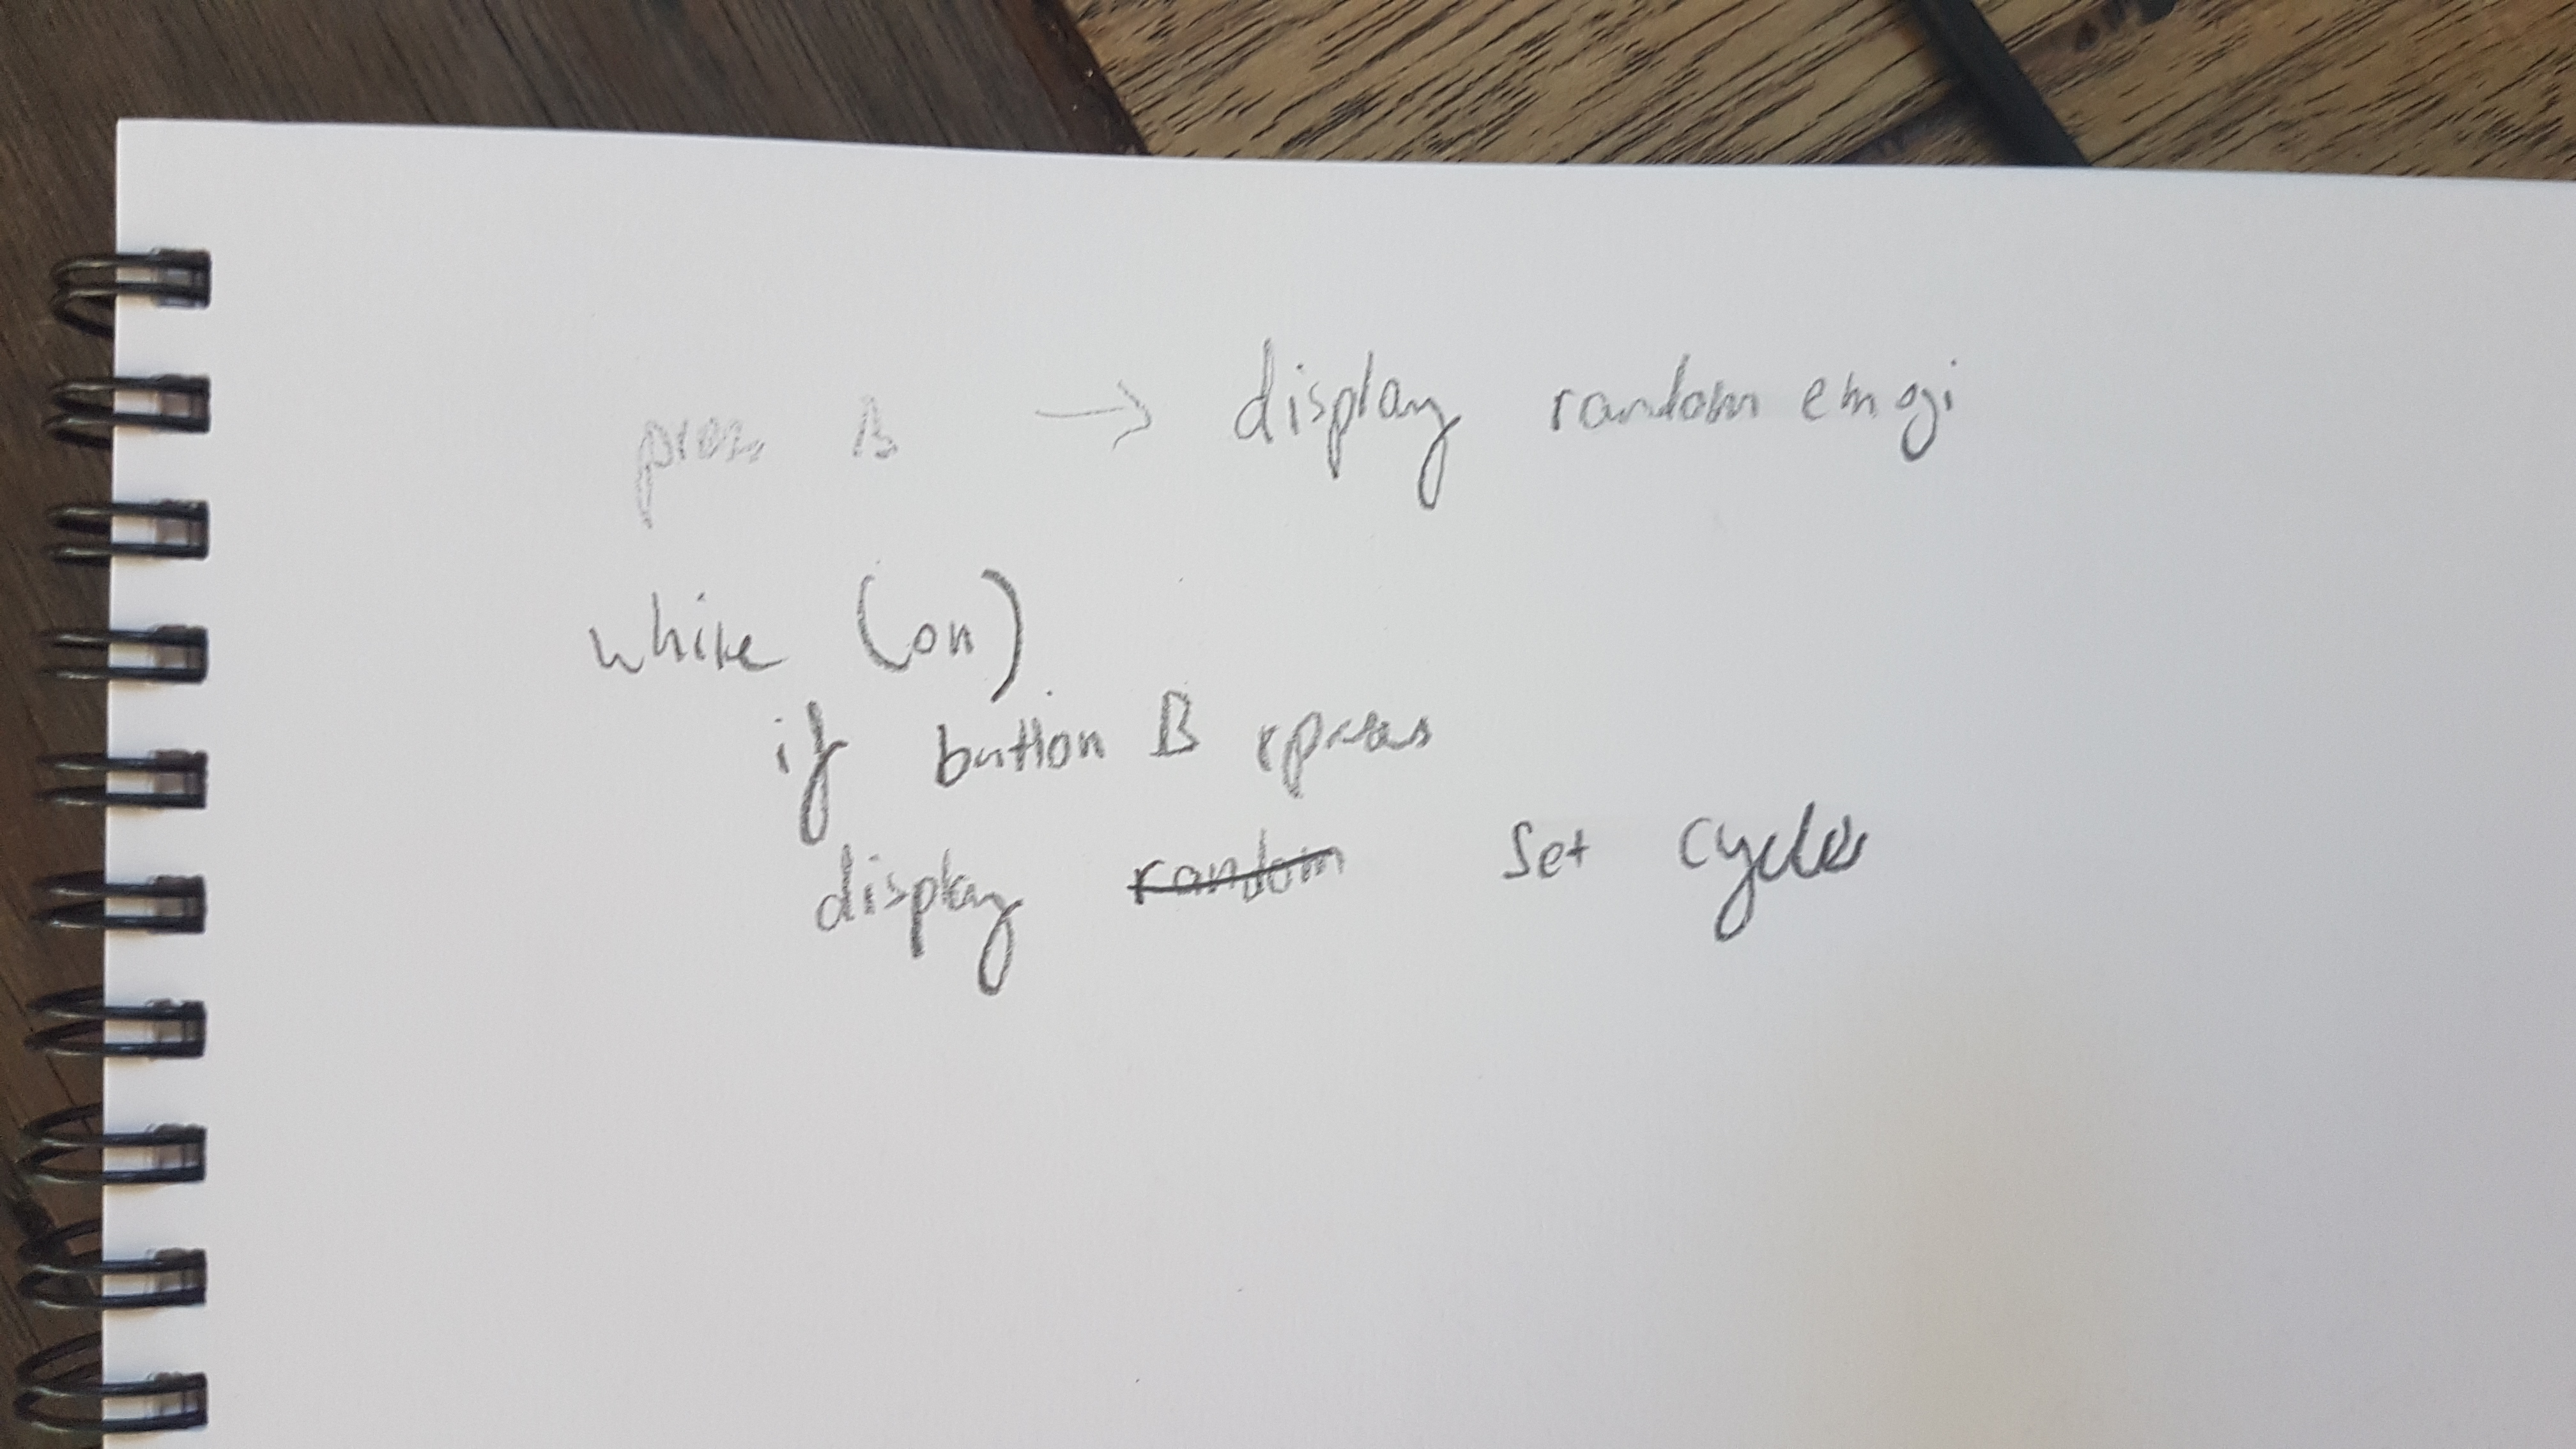 B → display random emoji
while (on)
if button B press
display random set cycles